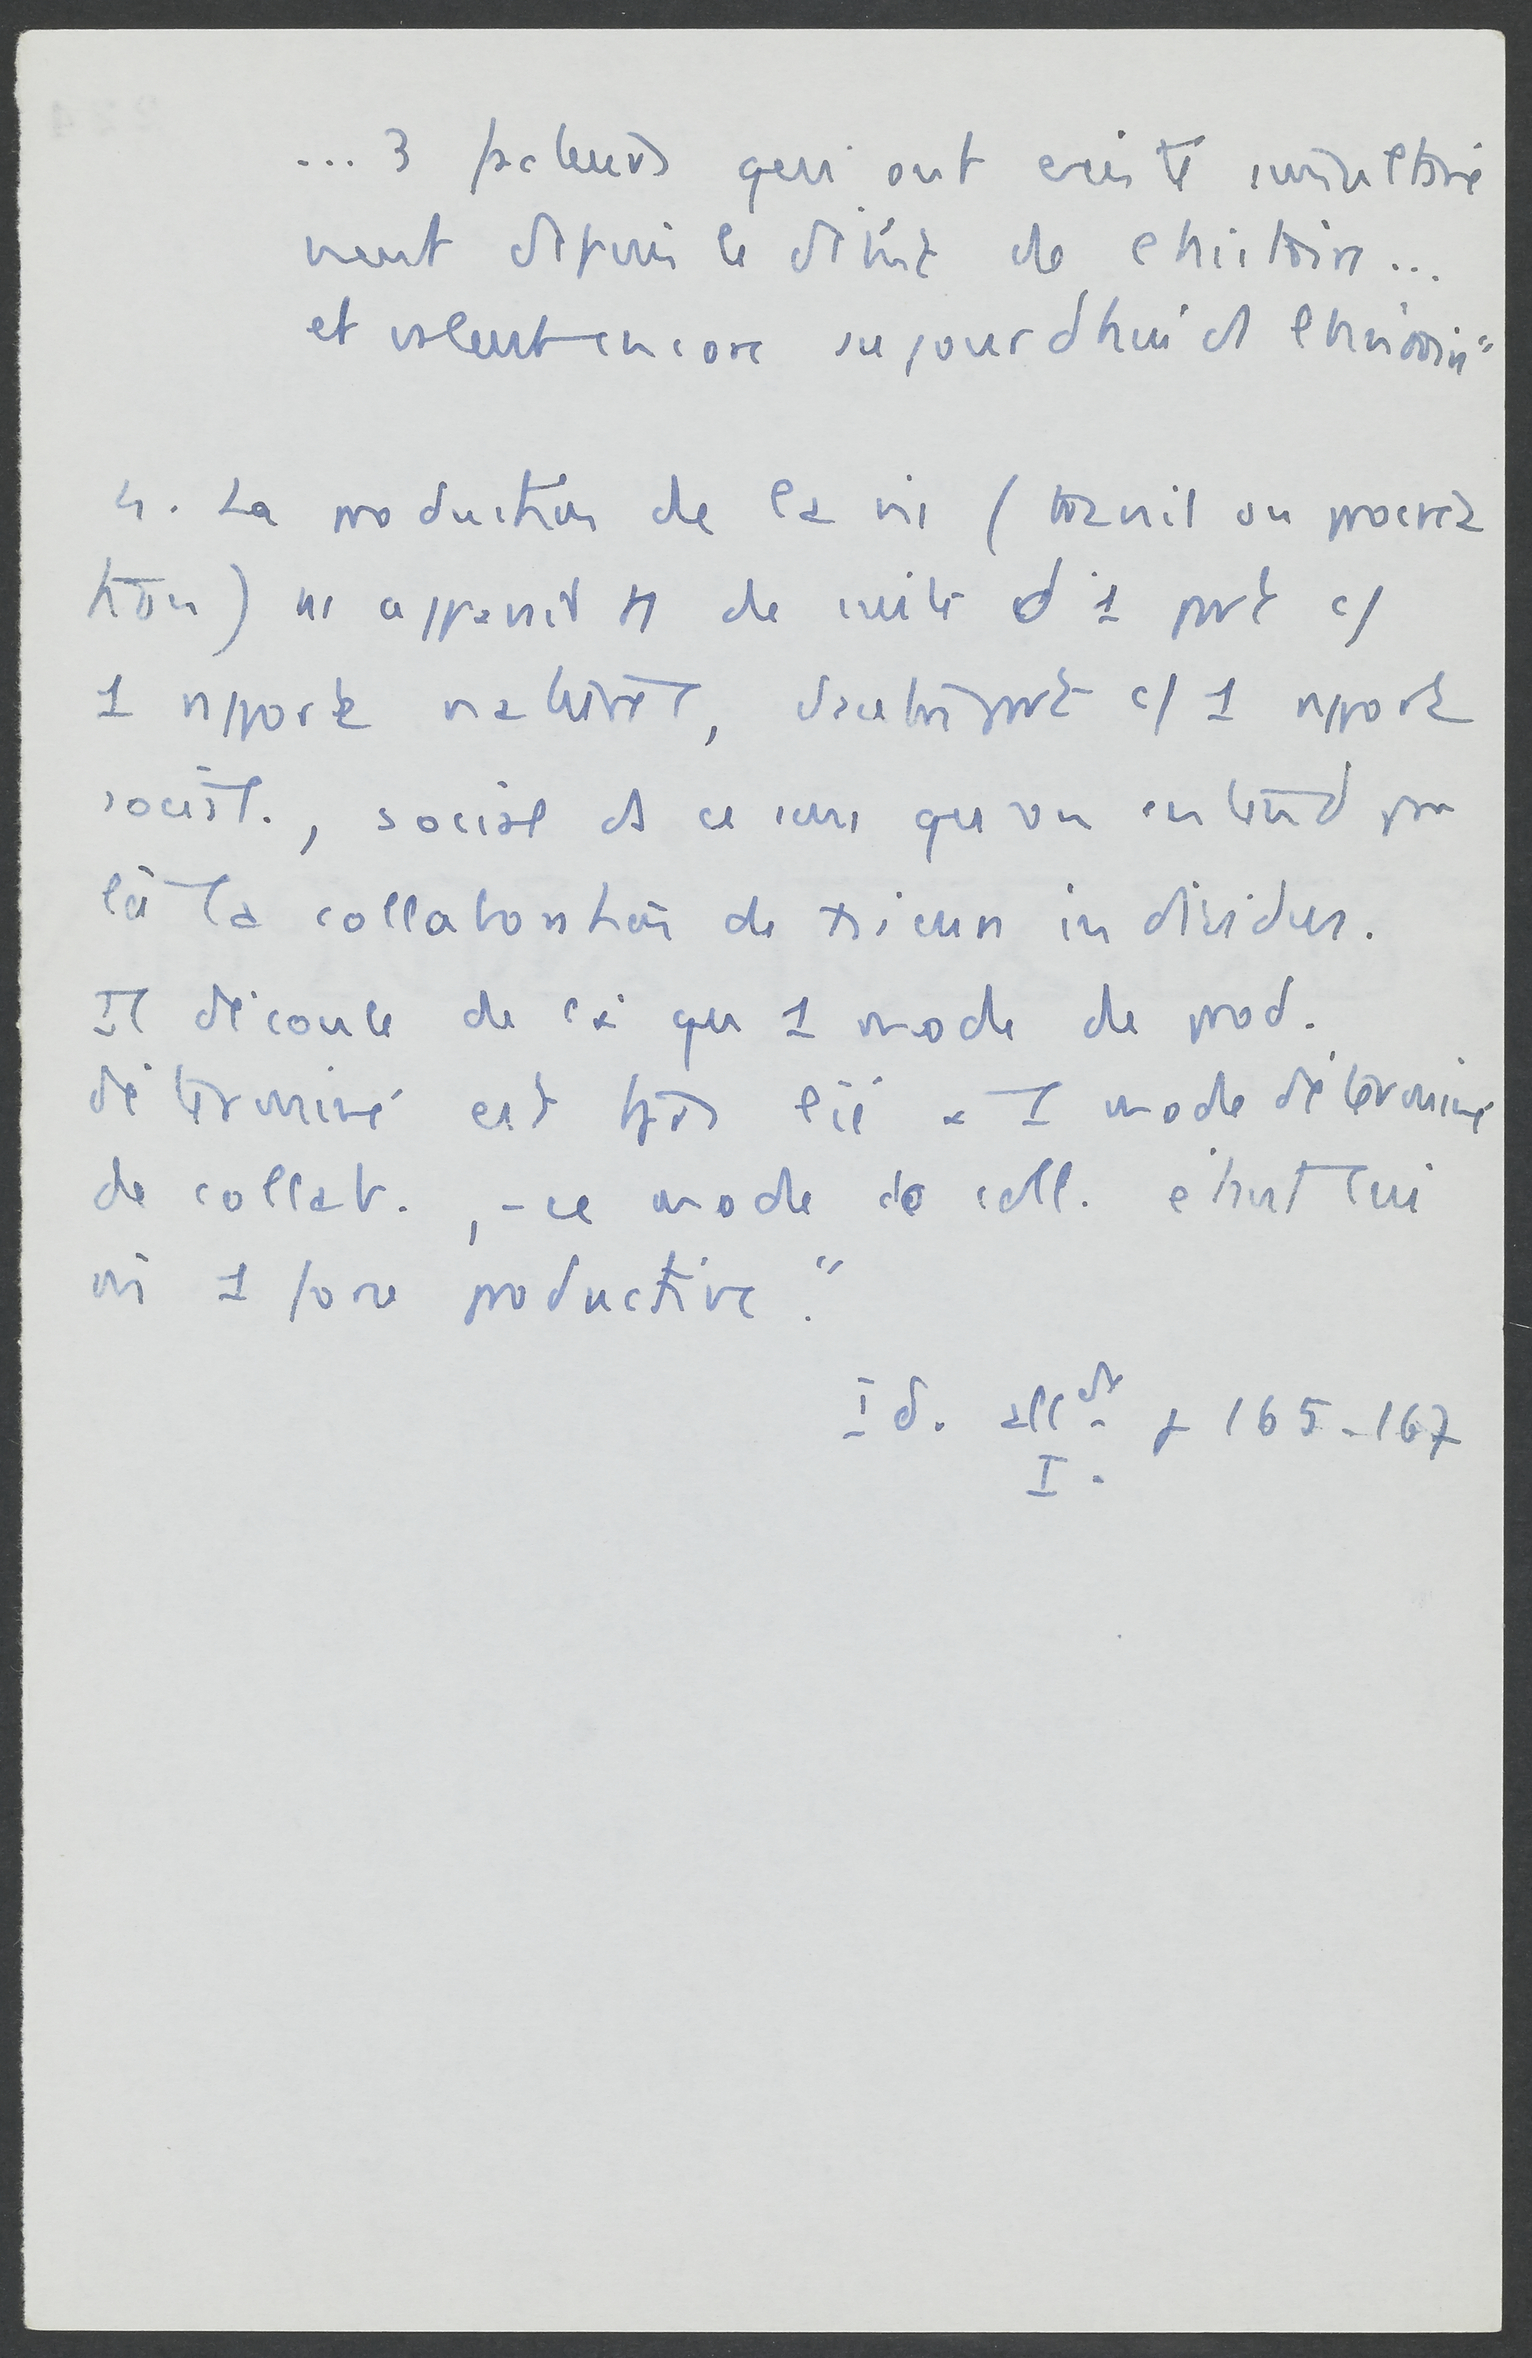 ... 3 facteurs qui ont existé simultané
ment depuis le début de l'histoire...
et valent encore aujourd'hui ds l'histoire"
4. La production de la vie (travail ou procréa
tion) ns apparaît de suite d'1 part c/
1 rapport naturel, d'autre part c/ 1 rapport
social, social ds ce sens qu'on entend par
là la collaboration de plusieurs individus.
Il découle de là que 1 mode de prod.
déterminé est tjrs lié à 1 mode déterminé
de collab., - ce mode de coll. étant lui
1 force productive."
Id. alld. p 165-167
I.